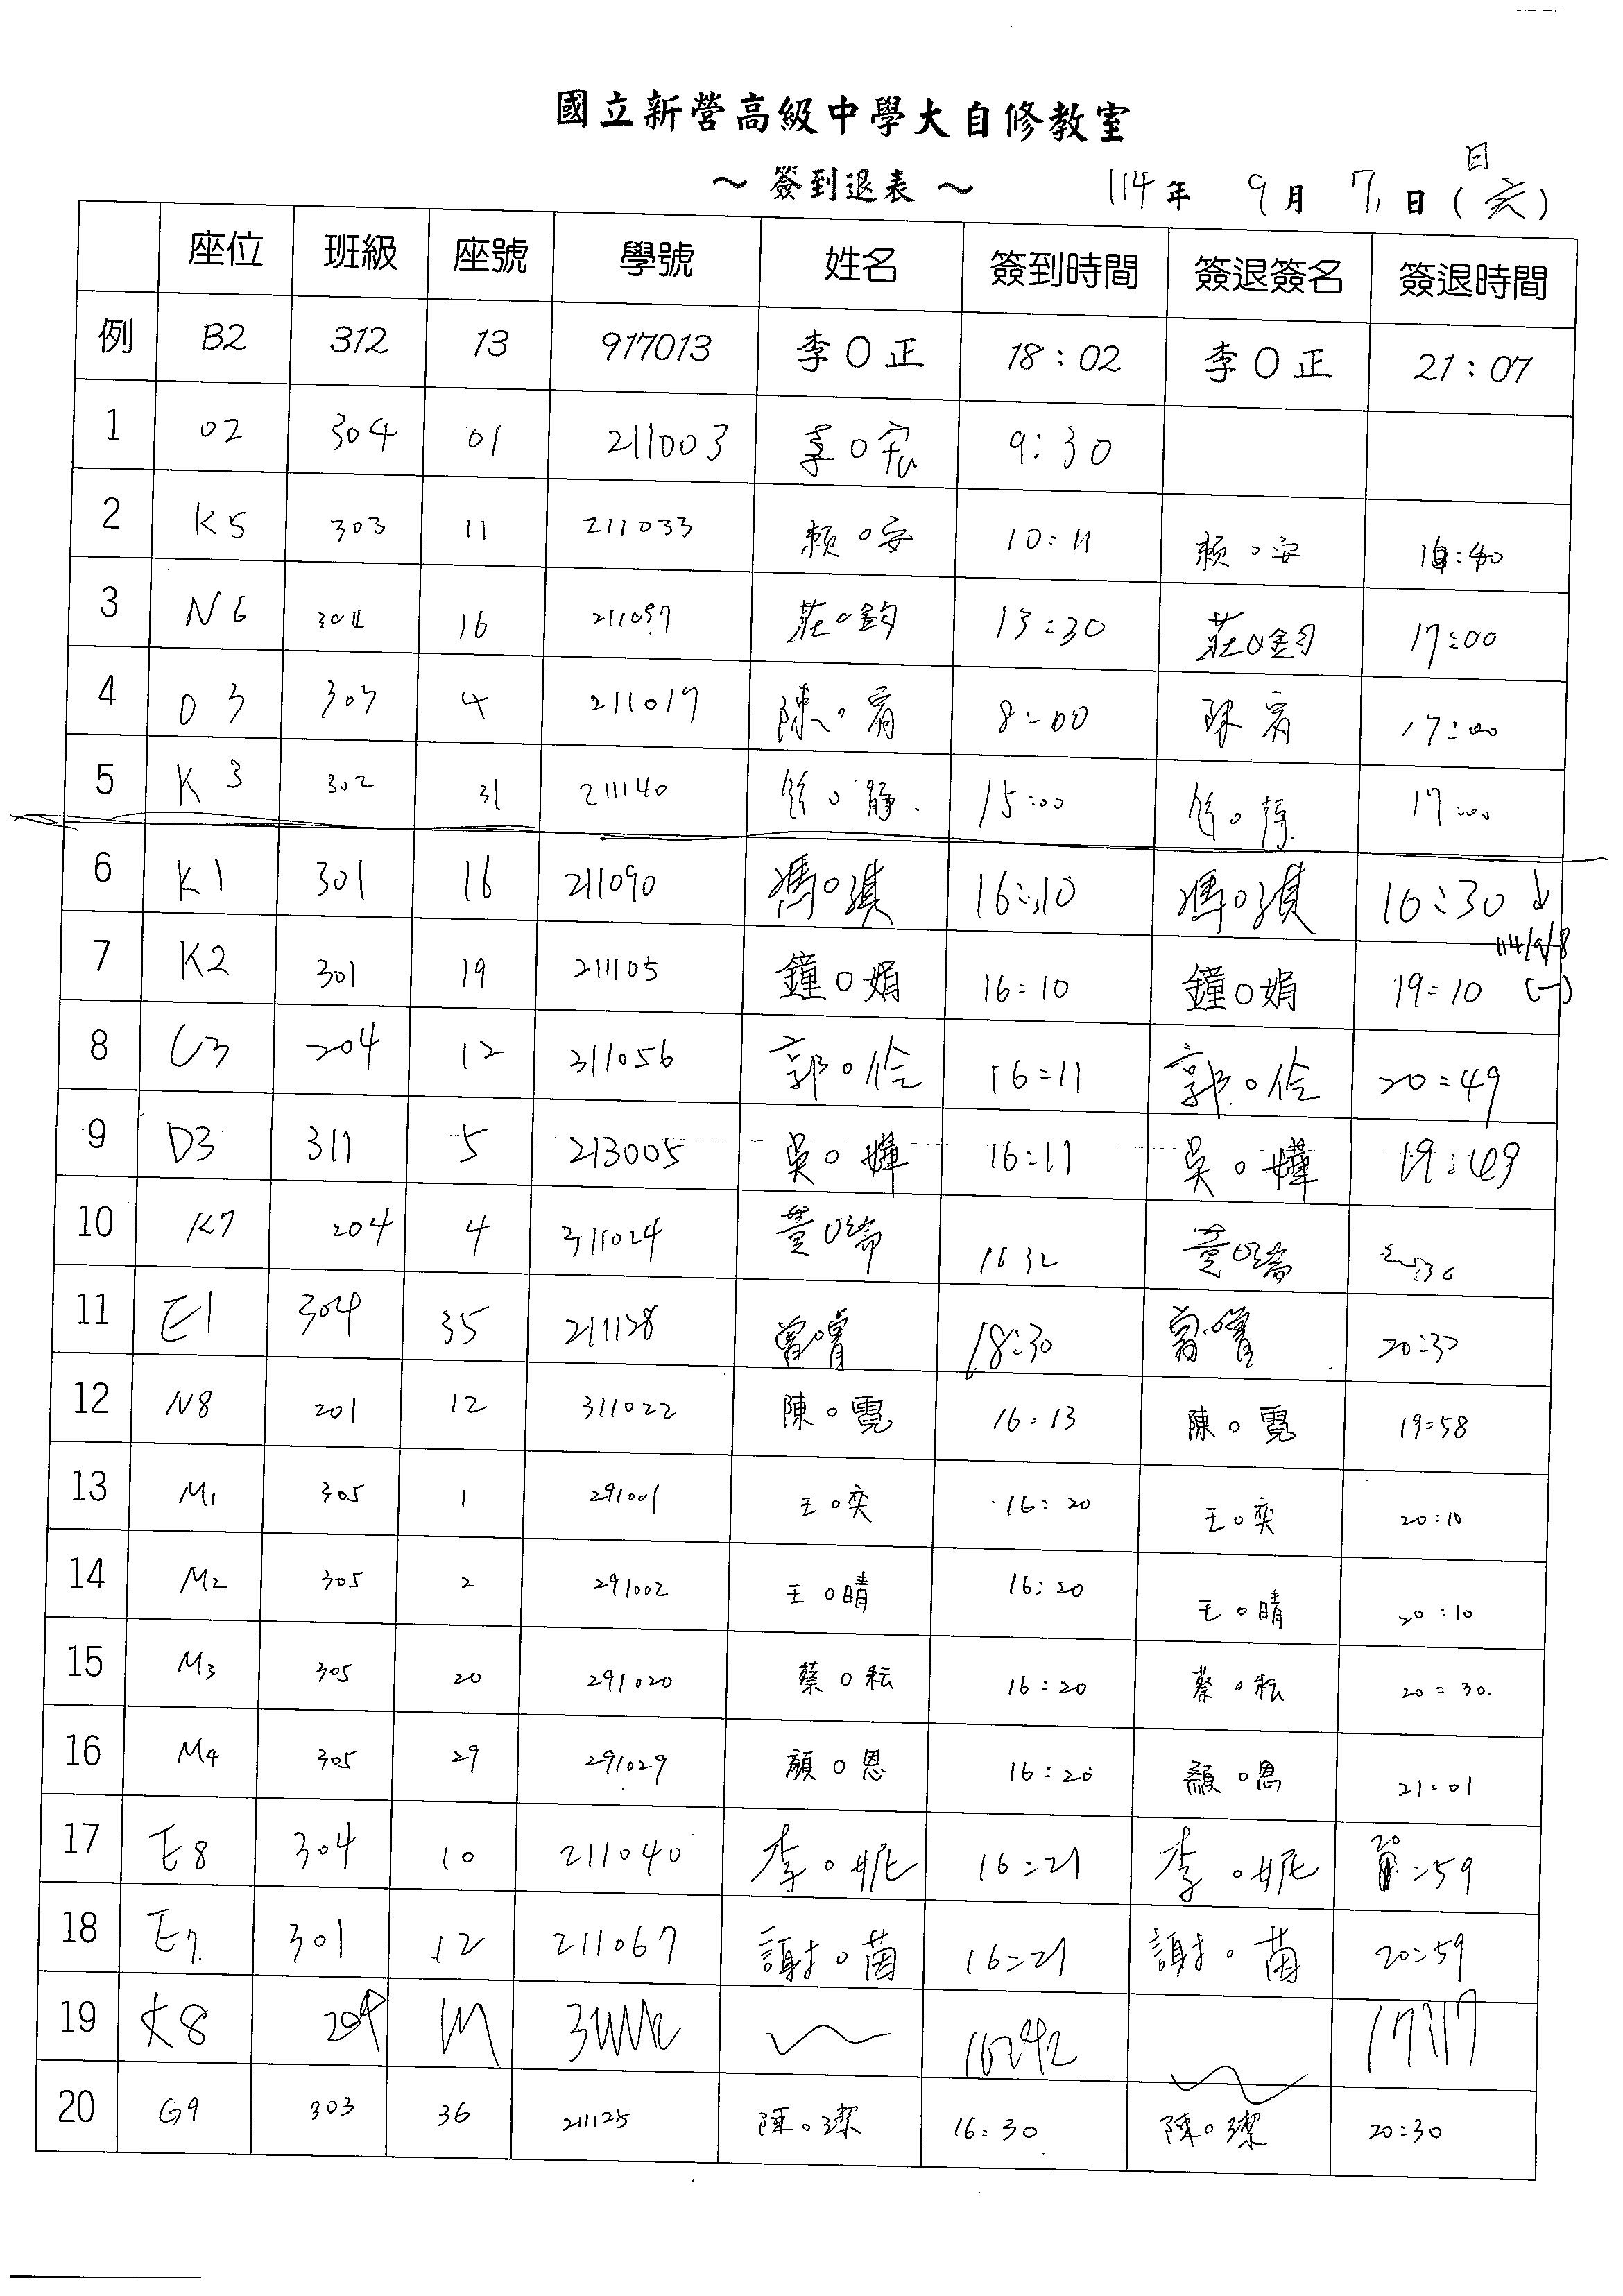 國立新營高級中學大自修教室
～ 簽到退表 ～ 114年 9月 7日(日)
座位 班級 座號 學號 姓名 簽到時間 簽退簽名 簽退時間
例 B2 312 13 917013 李O正 18:02 李O正 21:07
1 O2 304 01 211003 李O宏 9:30
2 K5 303 11 211033 賴O安 10:11 賴O安
3 N6 304 16 211097 莊O鈞 13:30 莊O鈞 17:00
4 O3 303 4 211017 陳O宥 8:00 陳宥 17:00
5 K3 302 31 211140 O靜 15:00 17:00
6 K1 301 16 211090 馮O淇 16:10 馮O淇 16:30 ↓
114/9/8
7 K2 301 19 211105 鐘O娟 16:10 鐘O娟 19:10 (一)
8 C3 204 12 311056 郭O伶 16:11 郭O伶 20:49
9 D3 311 5 213005 吳O嬅 16:11 吳O嬅 19:49
10 K7 204 4 311024 黃O瑞 16 32 黃O瑞
11 E1 304 35 211128 曾O睿 18:30 曾O睿 20:30
12 N8 201 12 311022 陳O霓 16:13 陳O霓 19:58
13 M1 305 1 291001 王O奕 16:20 王O奕 20:10
14 M2 305 2 291002 王O晴 16:20 王O晴 20:10
15 M3 305 20 291020 蔡O耘 16:20 蔡O耘 20:30
16 M4 305 29 291029 顏O恩 16:20 顏O恩 21:01
17 E8 304 10 211040 李O妮 16:21 李O妮 20:59
18 E7 301 12 211067 謝O茵 16:21 謝O茵 20:59
19 K8
20 G9 303 36 211125 陳O璨 16:30 陳O璨 20:30